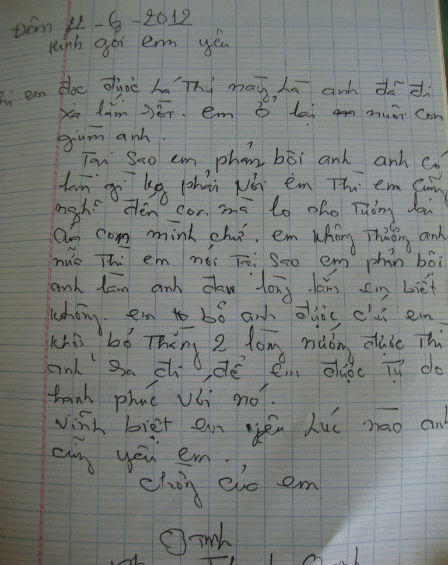 Đêm 11-6-2012
kính gởi em yêu
khi em đọc được lá thư này là anh đã đi
xa lắm rồi. em ở lại nuôi con
giùm anh.
Tại sao em phản bôi anh anh có
làm gì kg phải với em Thì em cũng
nghĩ đến con mà lo cho Tương lai
của con mình chứ. em không Thương anh
nữa Thì em nói Tại sao em phản bôi
anh làm anh đau lòng lắm em biết
không. em bỏ anh được chứ em
khó bỏ Thằng 2 lòng nướng được Thì
anh ra đi để em được Tự do
hạnh phúc với nó.
vĩnh biệt em yêu Lúc nào anh
cũng yêu em.
chồng của em